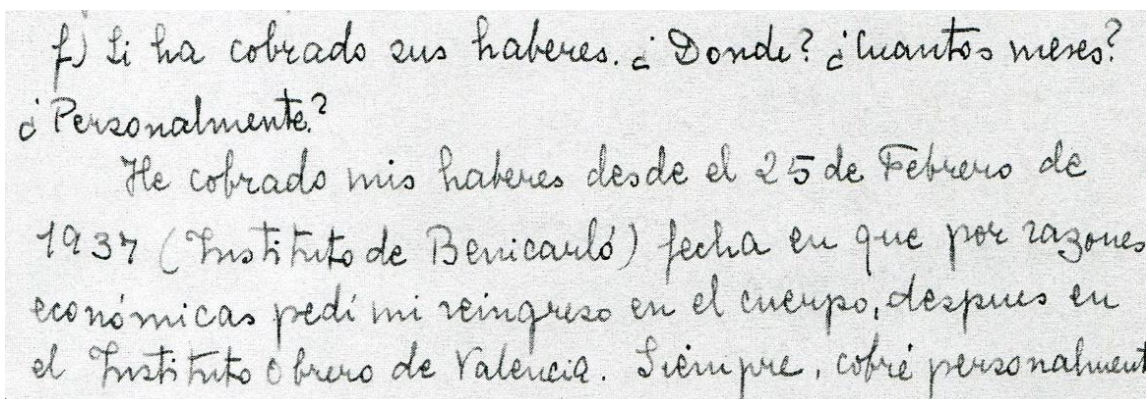 f) Si ha cobrado sus haberes. ¿Donde? ¿Cuantos meses?
¿Personalmente?
He cobrado mis haberes desde el 25 de Febrero de
1937 (Instituto de Benicarló) fecha en que por razones
económicas pedí mi reingreso en el cuerpo, despues en
el Instituto Obrero de Valencia. Siempre, cobré personalment